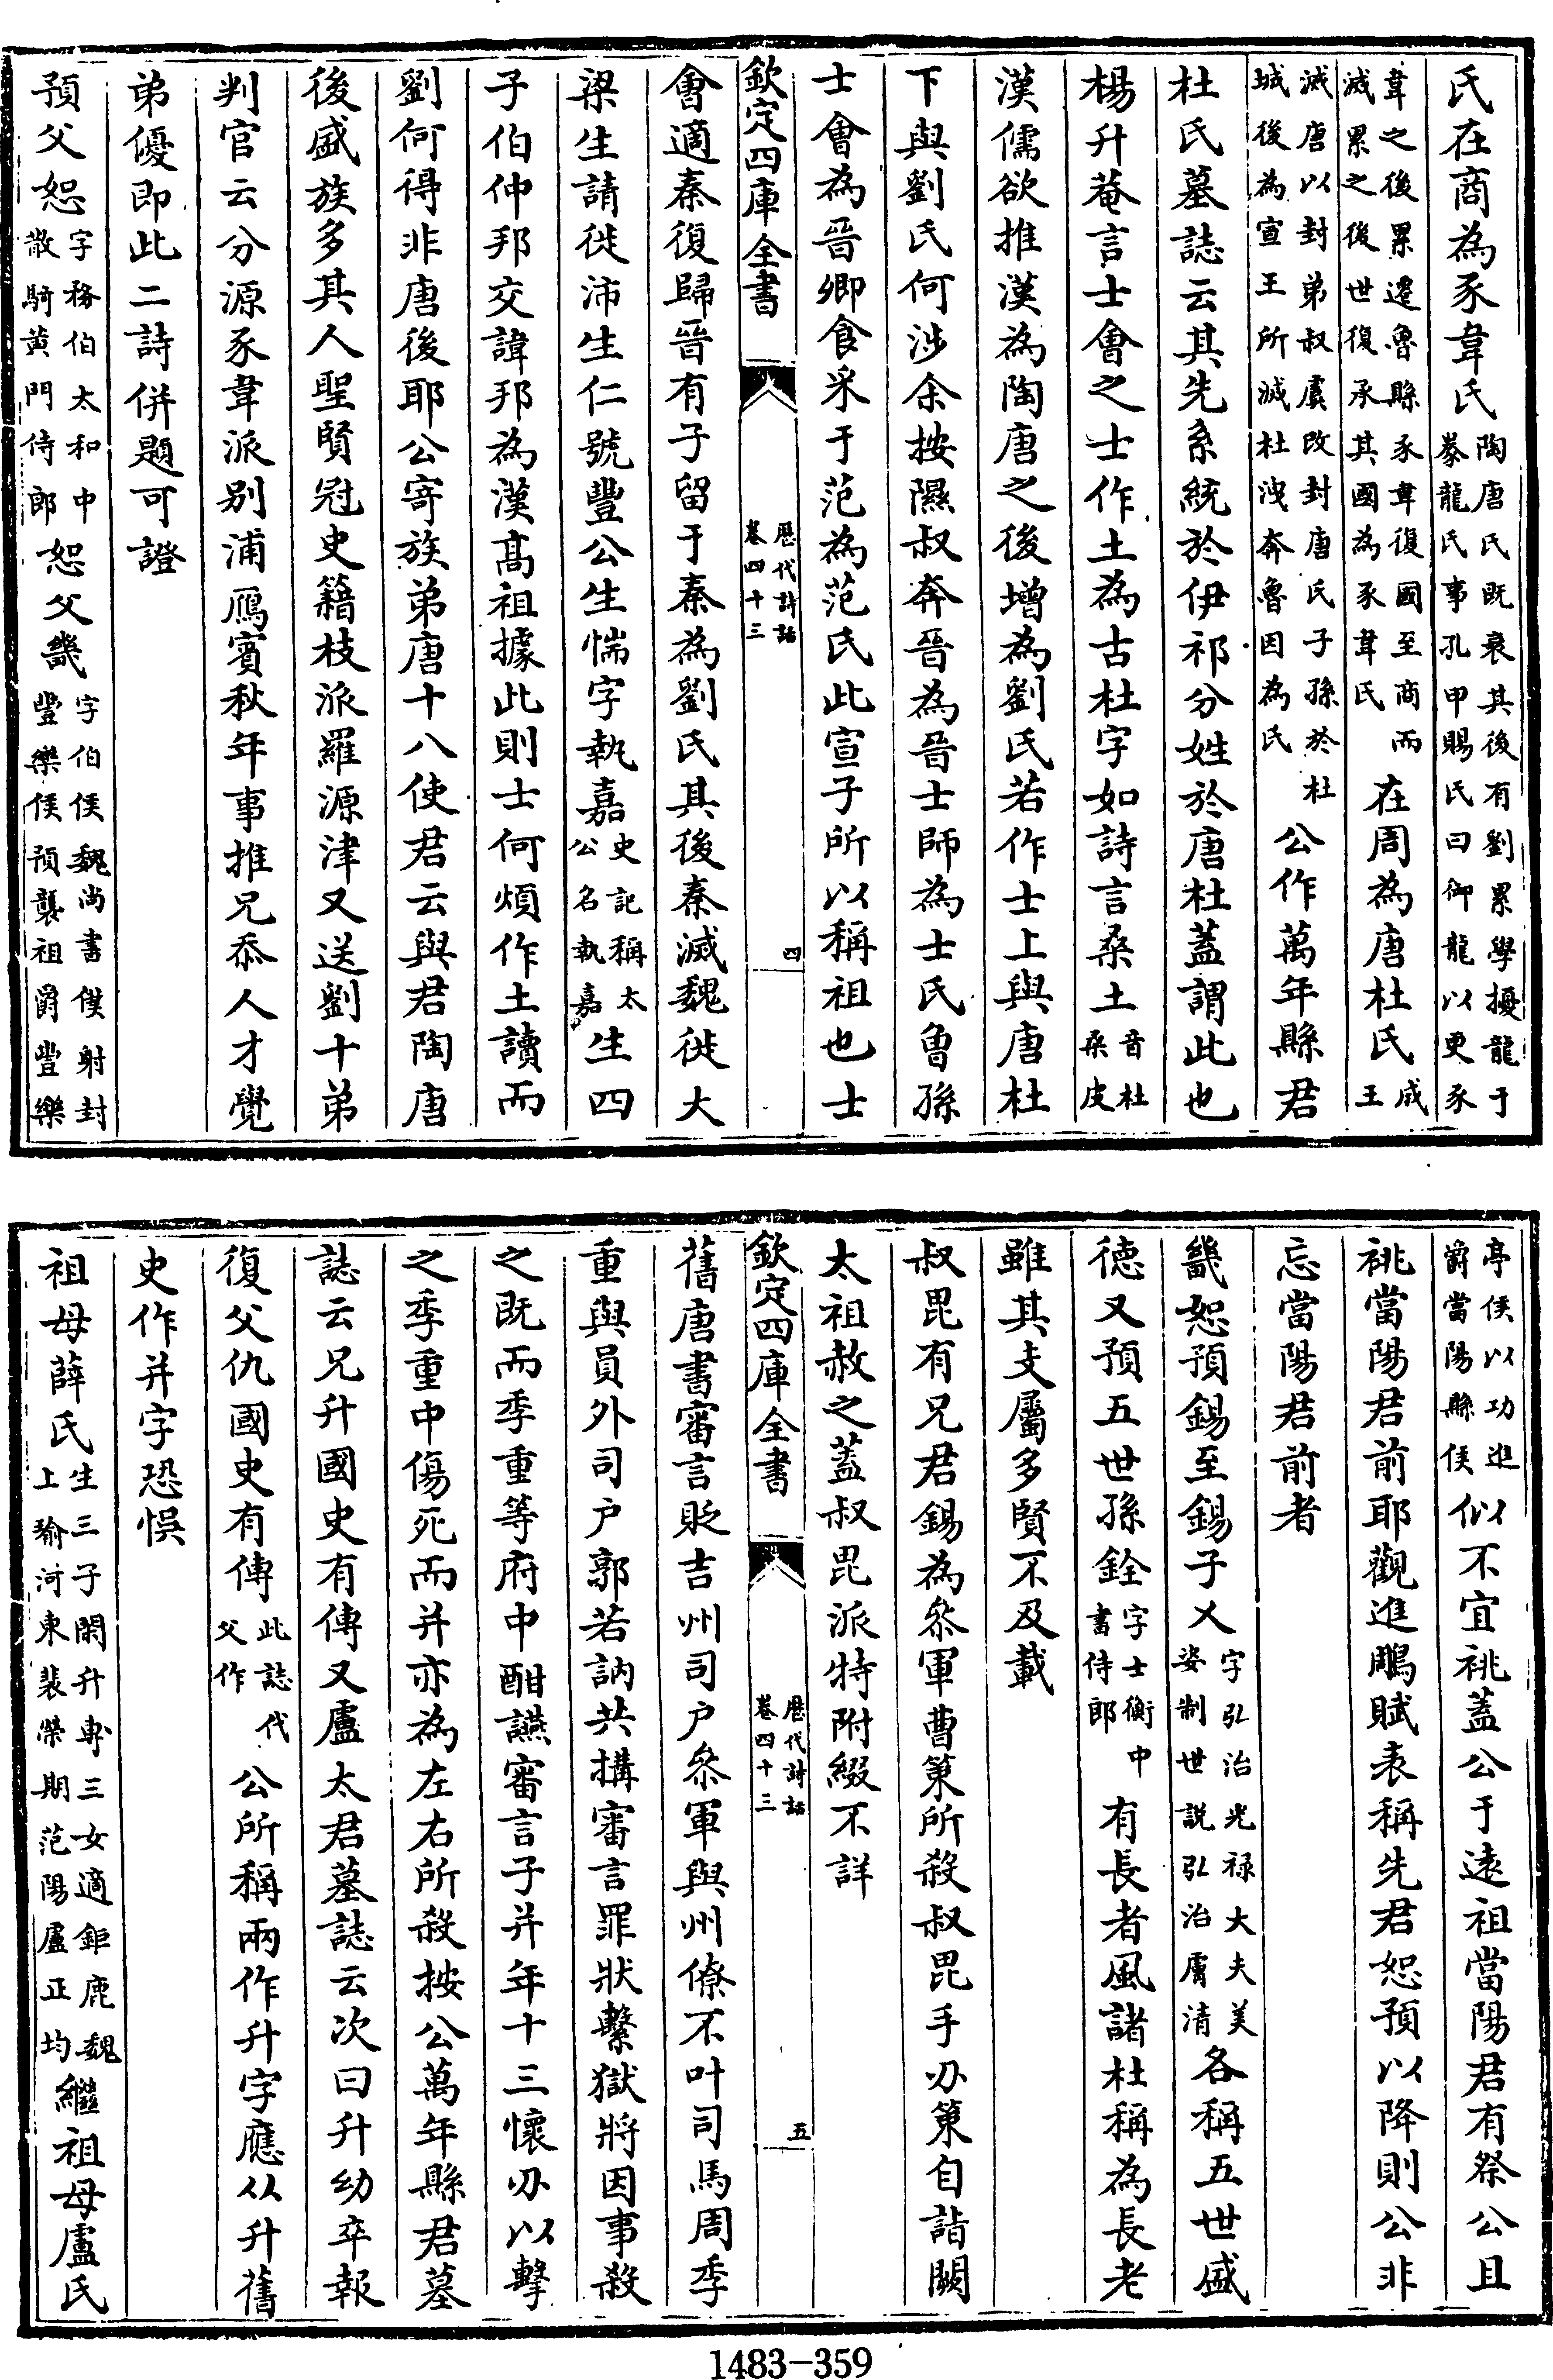 氏在商為豕韋氏陶唐氏既衰其後有劉累學擾龍于豢龍氏事孔甲賜氏曰御龍以更豕
韋之後累遷魯縣豕韋復國至商而滅累之後世復承其國為豕韋氏在周為唐杜氏成王
滅唐以封弟叔虞改封唐氏子孫於杜城後為宣王所滅杜洩奔魯因為氏公作萬年縣君
杜氏墓誌云其先系統於伊祁分姓於唐杜蓋謂此也
楊升菴言士會之士作土為古杜字如詩言桑土音杜桑皮
漢儒欲推漢為陶唐之後增為劉氏若作士上與唐杜
下與劉氏何涉余按隰叔奔晉為晉士師為士氏魯孫
士會為晉卿食采于范為范氏此宣子所以稱祖也士
欽定四庫全書 歷代詩話 卷四十三 四
會適秦復歸晉有子留于秦為劉氏其後秦滅魏徙大
梁生請徙沛生仁號豐公生惴字執嘉史記稱太公名執嘉生四
子伯仲邦交諱邦為漢高祖據此則士何煩作土讀而
劉何得非唐後耶公寄族弟唐十八使君云與君陶唐
後盛族多其人聖賢冠史籍枝派羅源津又送劉十弟
判官云分源豕韋派別浦鴈賓秋年事推兄忝人才覺
弟優即此二詩併題可證
預父恕字務伯太和中散騎黃門侍郎恕父畿字伯侯魏尚書僕射封豐樂侯預襲祖爵豐樂
亭侯以功進爵當陽縣侯似不宜祧蓋公于遠祖當陽君有祭公且
祧當陽君前耶觀進鵰賦表稱先君恕預以降則公非
忘當陽君前者
畿恕預錫至錫子乂字弘治光祿大夫美姿制世說弘治膚清各稱五世盛
德又預五世孫銓字士衡中書侍郎有長者風諸杜稱為長老
雖其支屬多賢不及載
叔毘有兄君錫為叅軍曹策所殺叔毘手刃策自詣闕
太祖赦之蓋叔毘派特附綴不詳
欽定四庫全書 歷代詩話 卷四十三 五
舊唐書審言貶吉州司户叅軍與州僚不叶司馬周季
重與員外司户郭若訥共搆審言罪狀繫獄將因事殺
之既而季重等府中酣讌審言子并年十三懷刃以擊
之季重中傷死而并亦為左右所殺按公萬年縣君墓
誌云兄升國史有傳又盧太君墓誌云次曰升幼卒報
復父仇國史有傳此誌代父作公所稱兩作升字應从升舊
史作并字恐悞
祖母薛氏生三子閑升專三女適鉅鹿魏上瑜河東裴榮期范陽盧正均繼祖母盧氏
1483-359